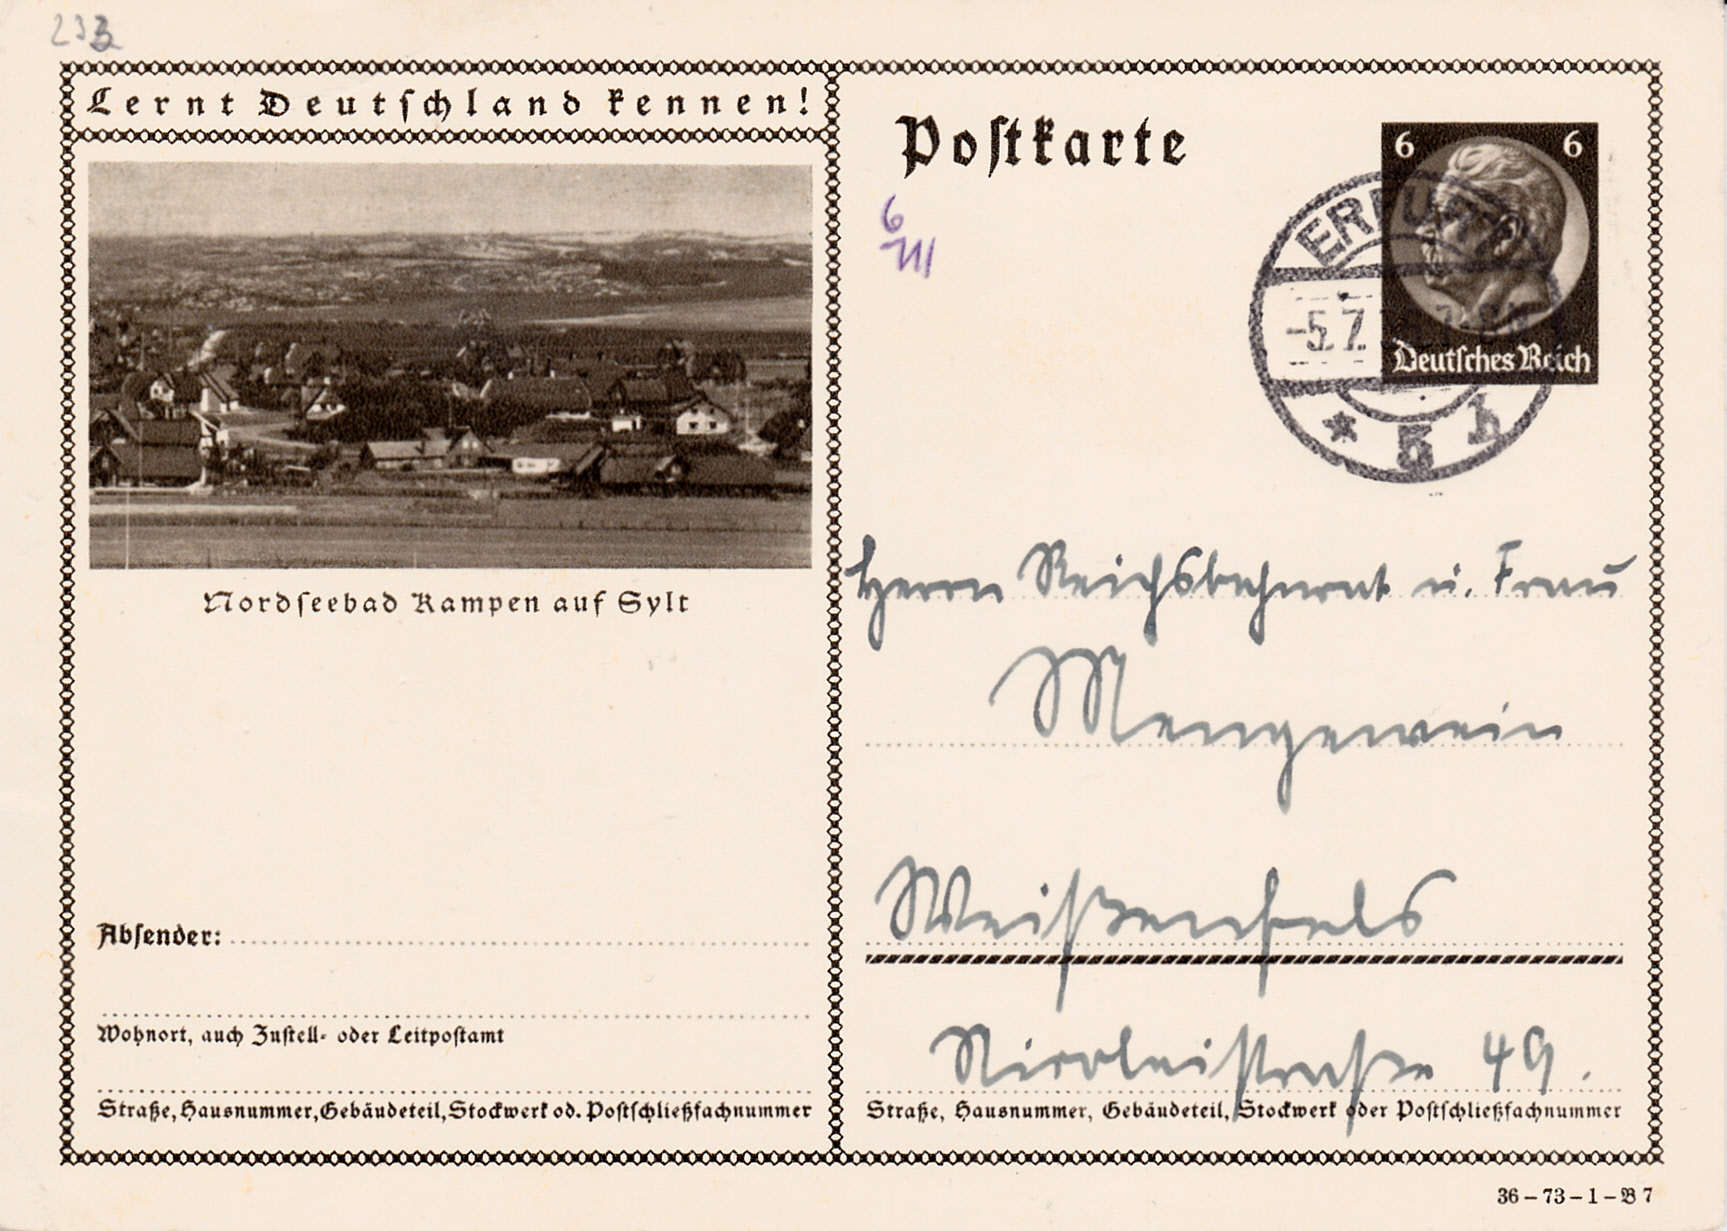 233
Lernt Deutschland kennen!
Nordseebad Kampen auf Sylt
Absender:
Wohnort, auch Zustell- oder Leitpostamt
Straße, Hausnummer, Gebäudeteil, Stockwerk od. Postschließfachnummer
Postkarte
6 6
Deutsches Reich
ERFURT
-5.7.
* 5 h
6
Herrn Reichsbahnrat u. Frau
Mengewein
Weißenfels
Nicolaistraße 49.
Straße, Hausnummer, Gebäudeteil, Stockwerk oder Postschließfachnummer
36-73-1-B 7